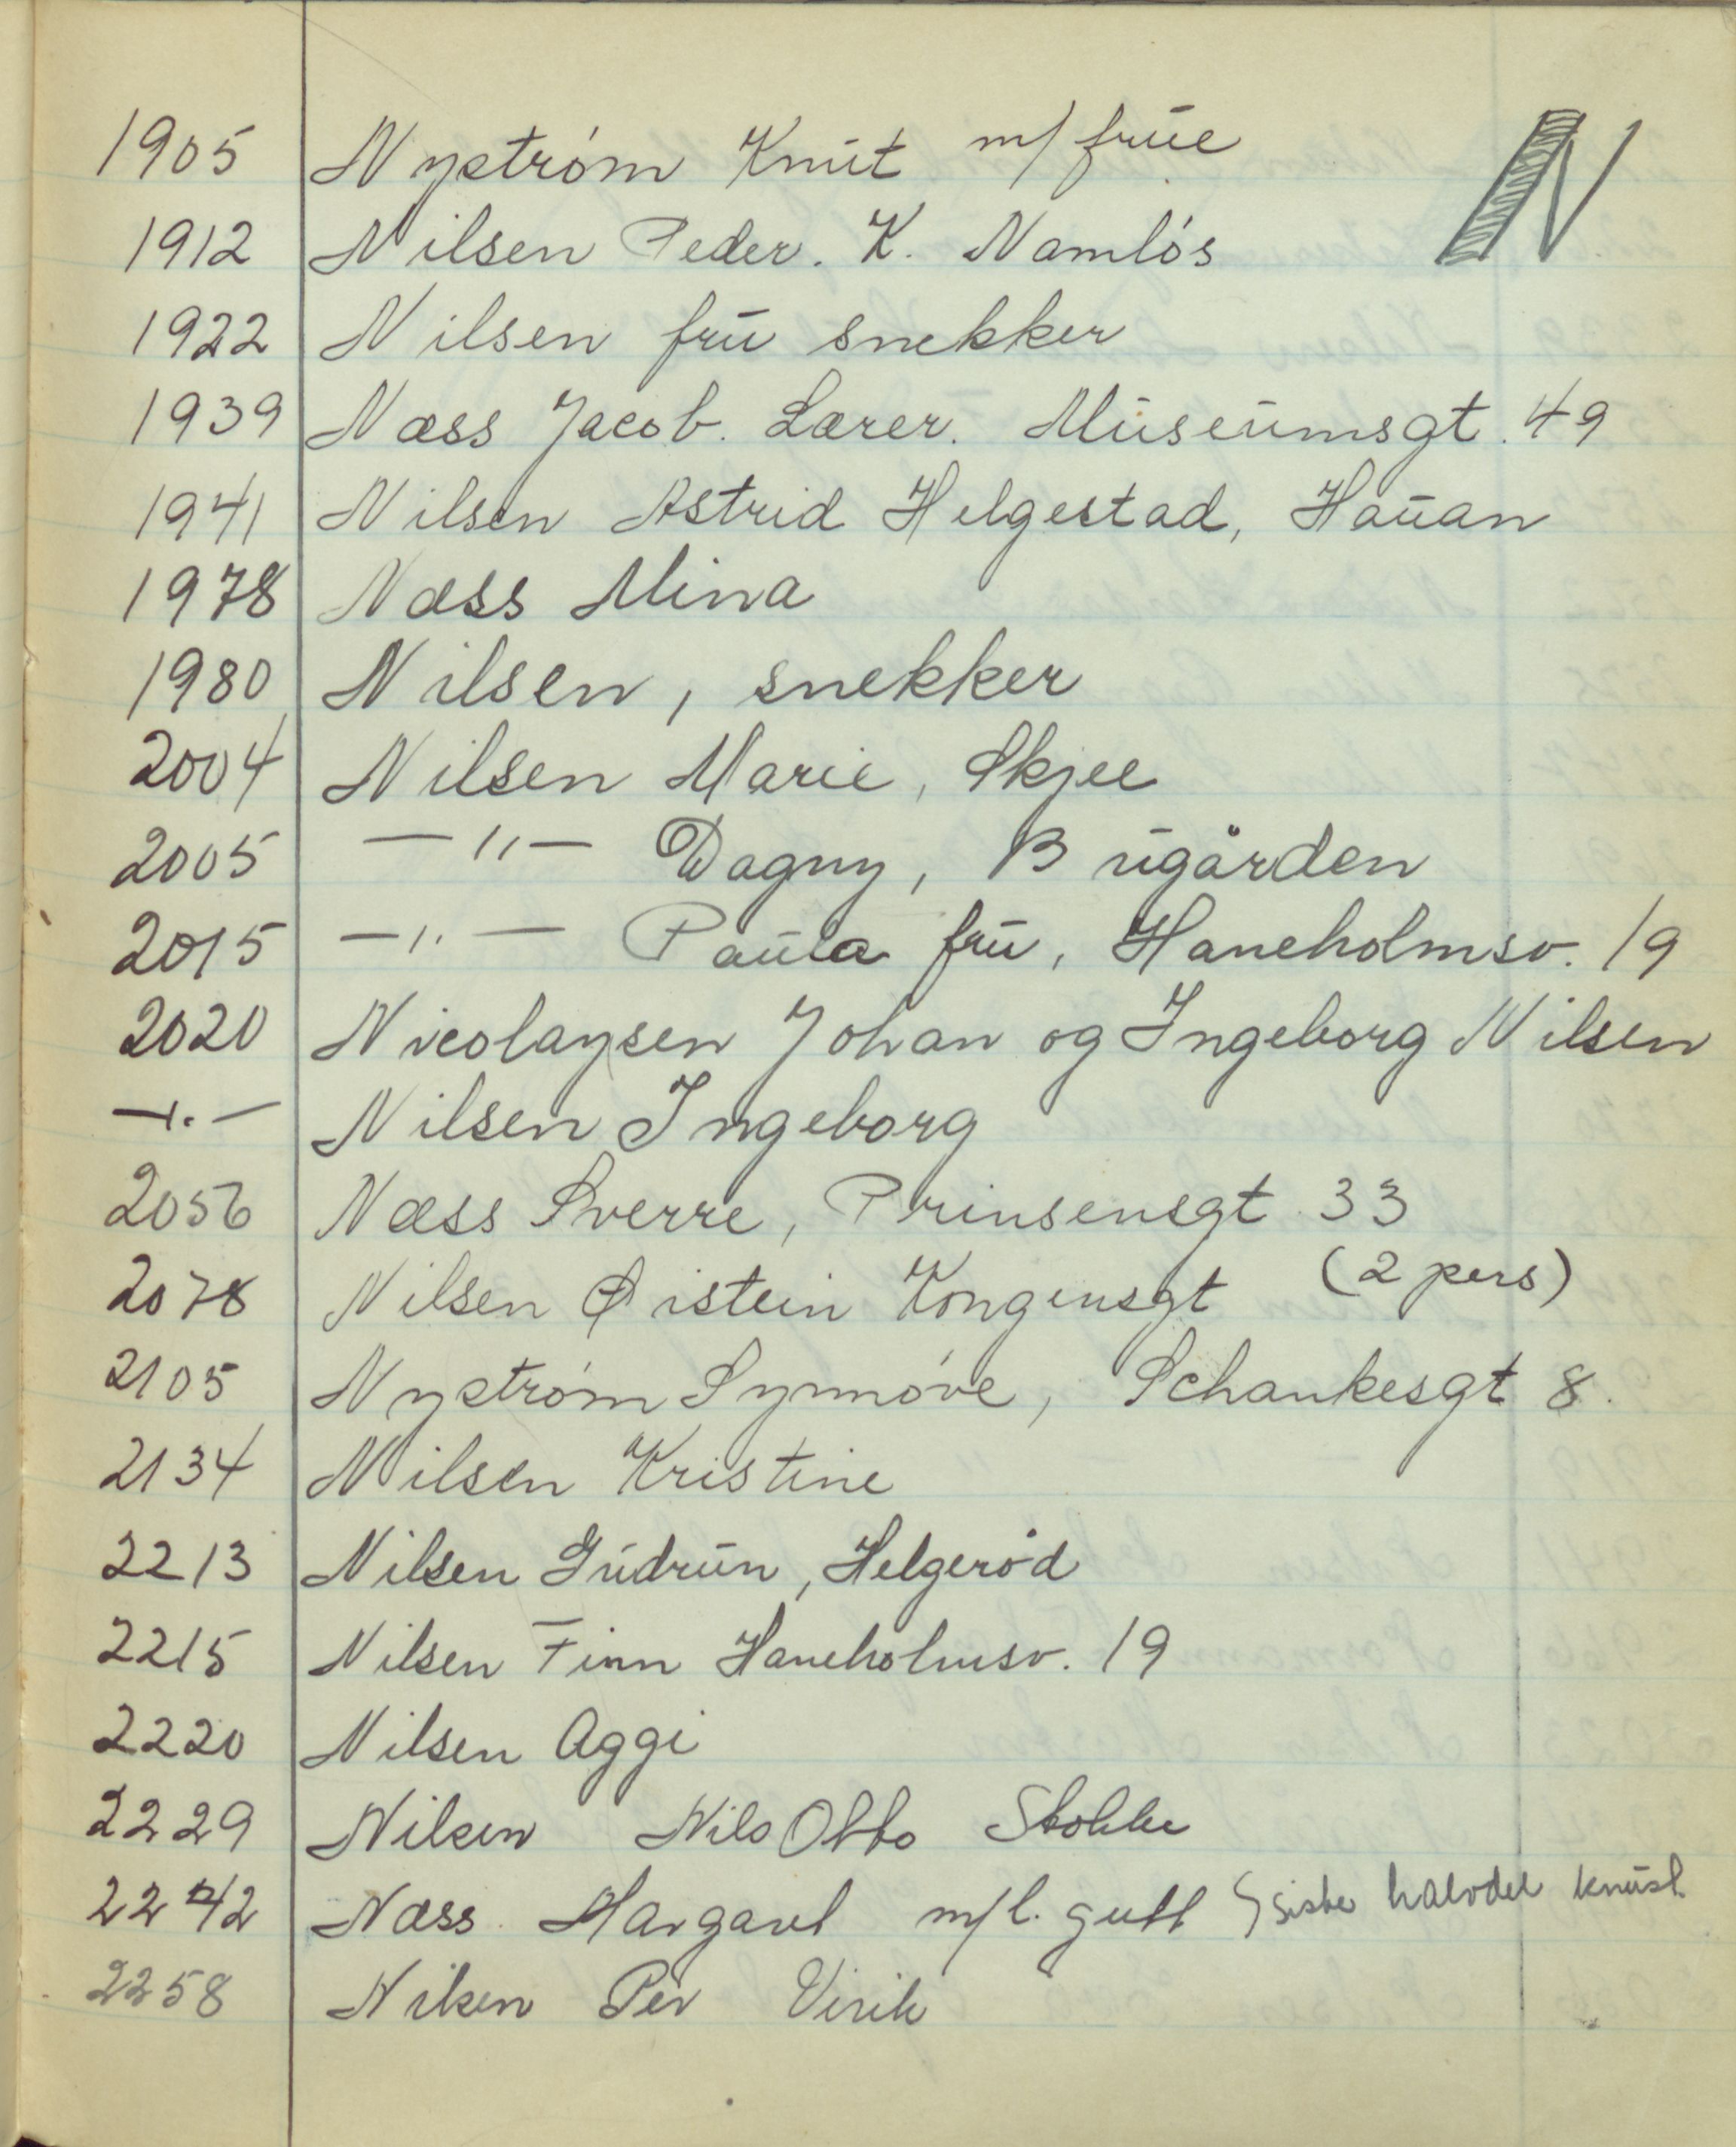 N
1905 Nyström Knut m/ frue
1912 Nilsen Peder. K. Namløs
1922 Nilsen fru snekker
1939 Næss Jacob. Lærer. Museumsgt. 49
1941 Nilsen Astrid Helgestad, Hauan
1978 Næss Mina
1980 Nilsen, snekker
2004 Nilsen Marie, Skjee
2005 —"— Dagny, Bugården
2015 —"— Paula fru, Haneholmsv. 19
2020 Nicolaysen Johan og Ingeborg Nilsen
—"— Nilsen Ingeborg
2056 Næss Sverre, Prinsensgt 33
2078 Nilsen Øistein Kongensgt (2 pers)
2105 Nyström Synnøve, Schankesgt 8.
2134 Nilsen Kristine
2213 Nilsen Gudrun, Helgerød
2215 Nilsen Finn Haneholmsv. 19
2220 Nilsen Aggi
2229 Nilsen Nils Otto Stokke
2242 Næss Margaret m/l. gutt siste halvdel knust
2258 Nilsen Per Virik